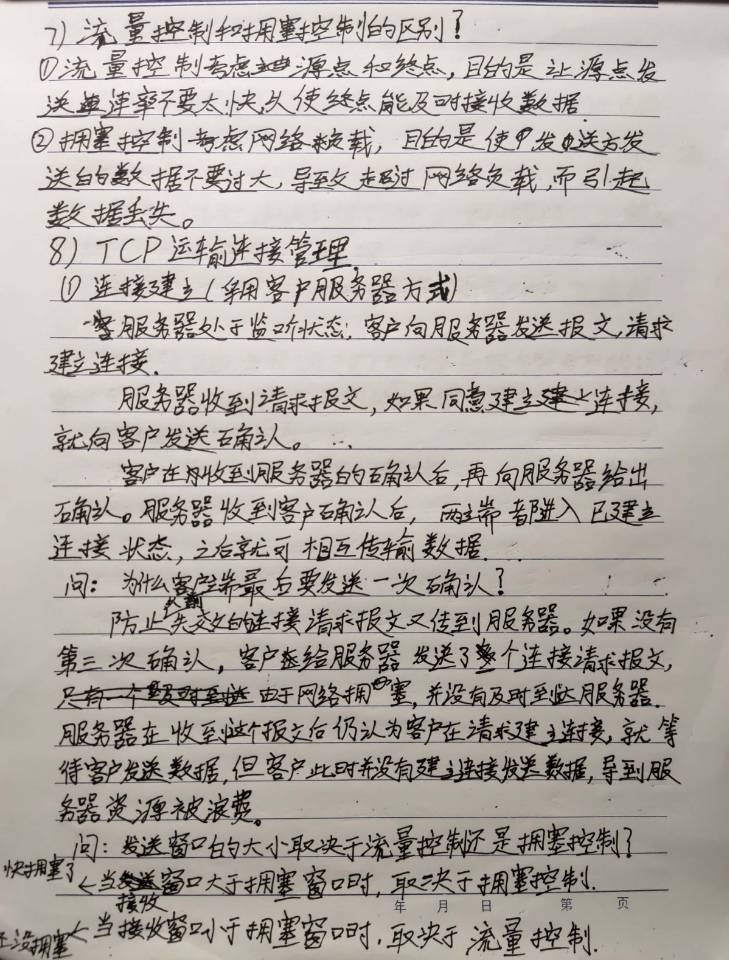 7) 流量控制和拥塞控制的区别？
① 流量控制考虑源点和终点，目的是让源点发
送速率不要太快，从使终点能及时接收数据.
② 拥塞控制考虑网络负载，目的是使发送方发
送的数据不要过大，导致超过网络负载，而引起
数据丢失。
8) TCP运输连接管理
① 连接建立(采用客户服务器方式)
服务器处于监听状态；客户向服务器发送报文，请求
建立连接.
服务器收到请求报文，如果同意建立连接，
就向客户发送确认。
客户在收到服务器的确认后，再向服务器给出
确认。服务器收到客户确认后，两端都进入已建立
连接状态，之后就可相互传输数据.
问：为什么客户端最后要发送一次确认？
防止失效的链接请求报文又传到服务器。如果没有
第三次确认，客户给服务器发送了个连接请求报文，
由于网络拥塞，并没有及时到达服务器.
服务器在收到这个报文后仍认为客户在请求建立连接，就等
待客户发送数据，但客户此时并没有建立连接发送数据，导致服
务器资源被浪费。
问：发送窗口的大小取决于流量控制还是拥塞控制？
快拥塞了 < 当接收窗口大于拥塞窗口时，取决于拥塞控制.
年 月 日 第 页
还没拥塞 < 当接收窗口小于拥塞窗口时，取决于流量控制.